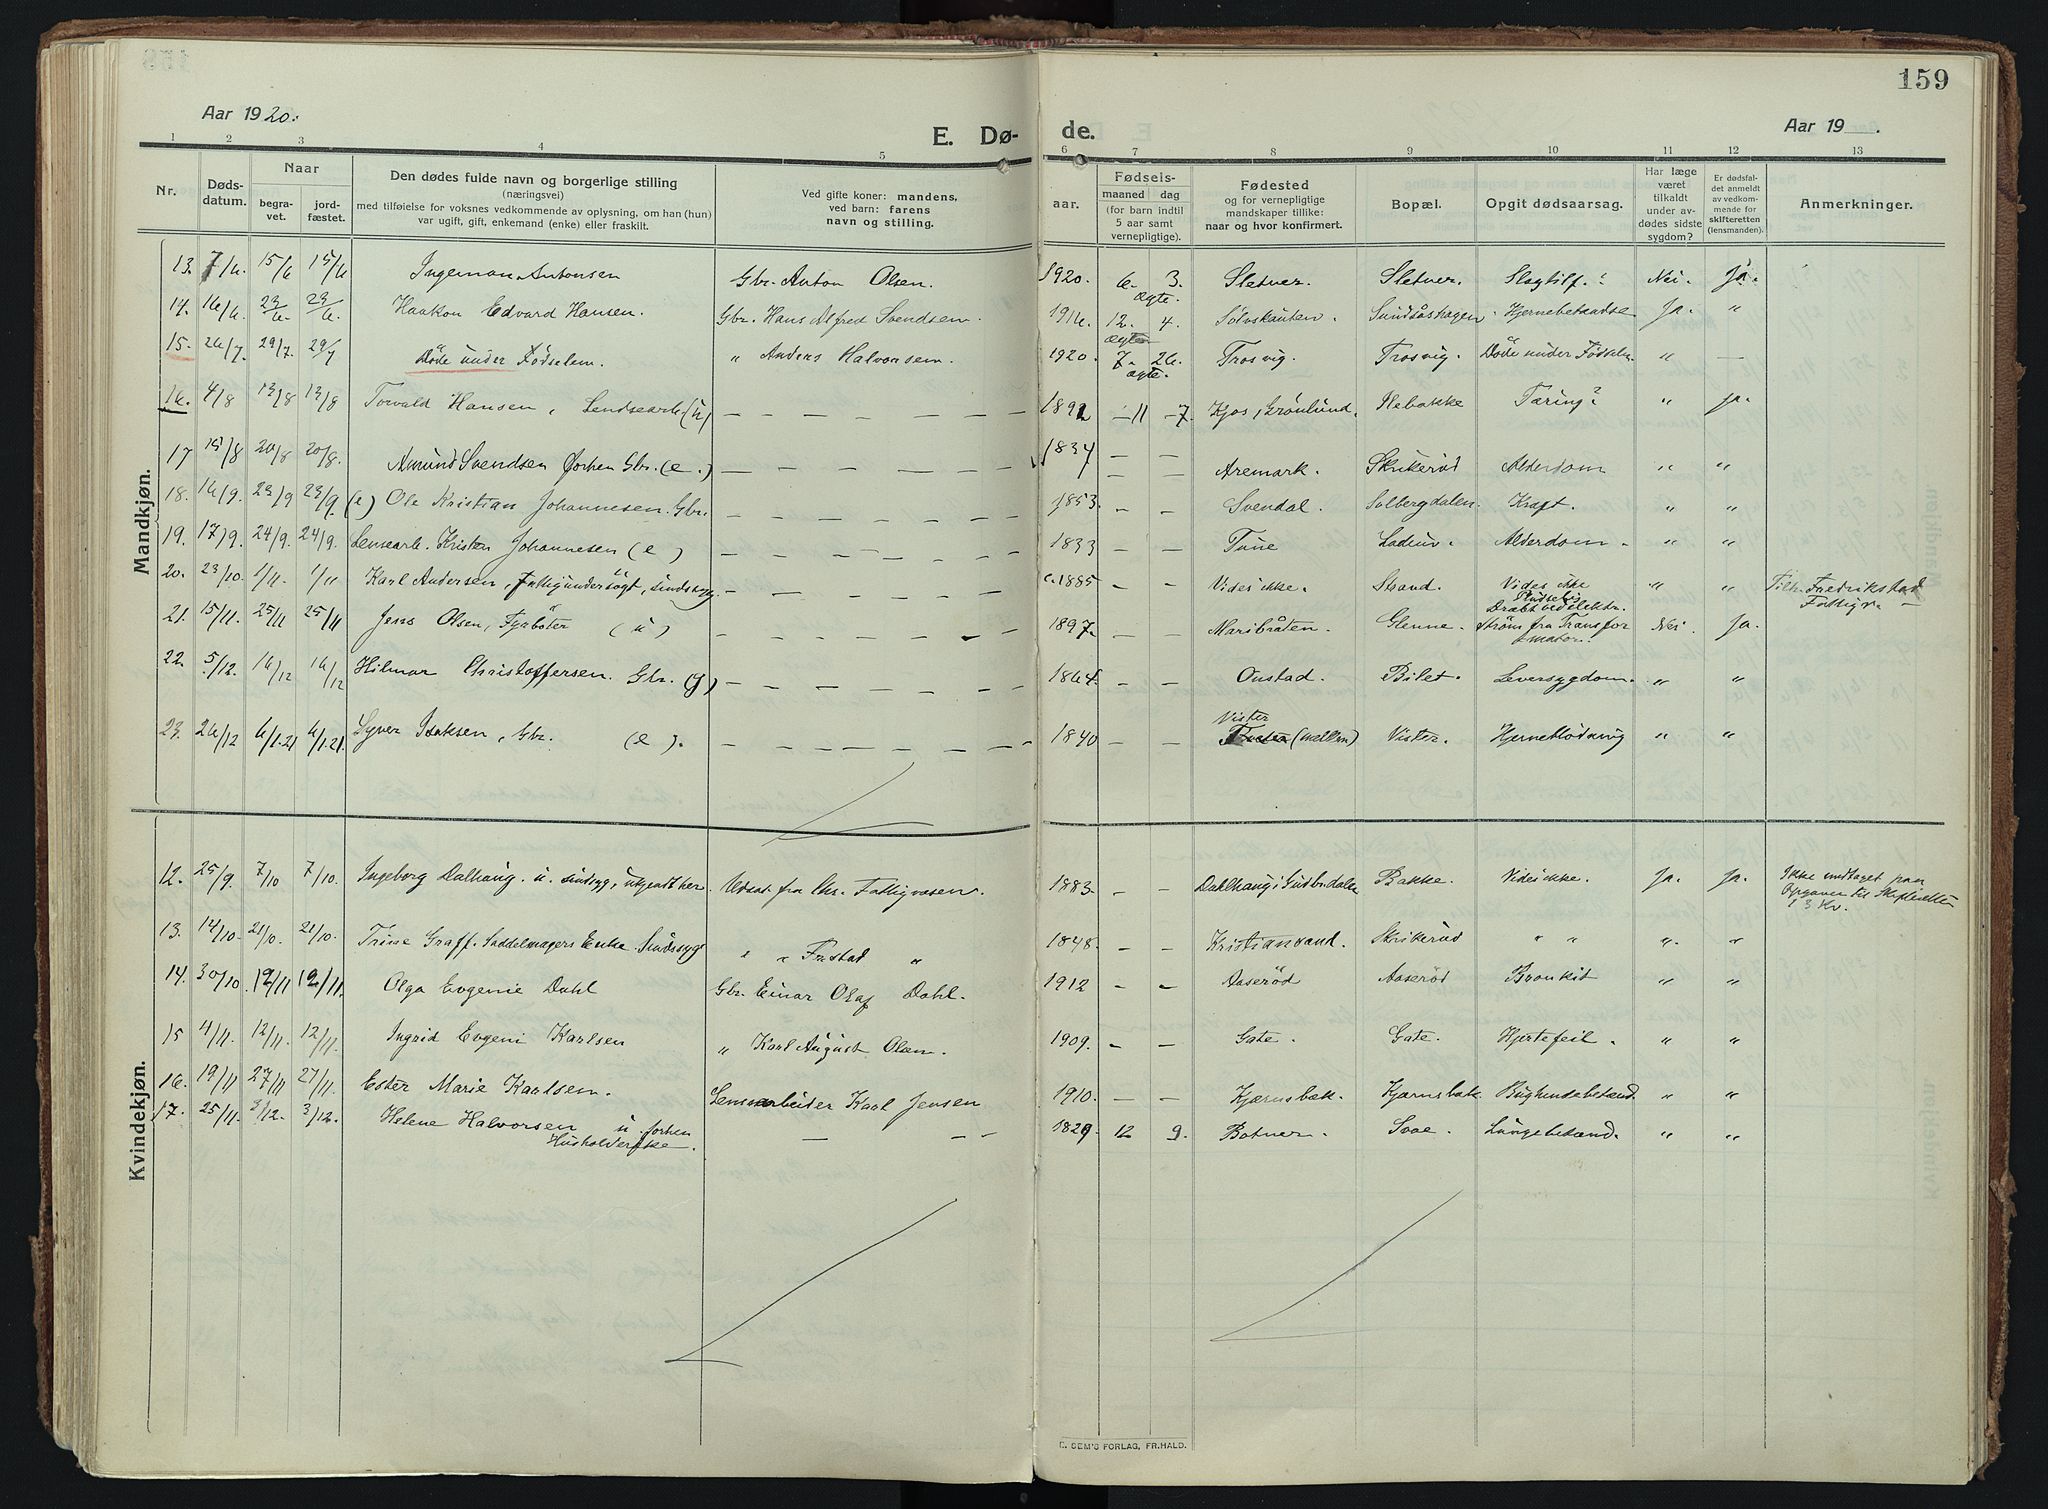 159
Aar 1920.
E. Dø-
de.
Aar 19 .
1 2 3 4 5 6 7 8 9 10 11 12 13
Nr.
Døds-
datum.
Naar
begra-
vet.
jord-
fæstet.
Den dødes fulde navn og borgerlige stilling
(næringsvei)
med tilføielse for voksnes vedkommende av oplysning, om han (hun)
var ugift, gift, enkemand (enke) eller fraskilt.
Ved gifte koner: mandens,
ved barn: farens
navn og stilling.
Fødsels-
aar. maaned dag
(for barn indtil
5 aar samt
vernepligtige).
Fødested
og for vernepligtige
mandskaper tillike:
naar og hvor konfirmert.
Bopæl.
Opgit dødsaarsag.
Har læge
været
tilkaldt
under av-
dødes sidste
sygdom?
Er dødsfal-
det anmeldt
av vedkom-
mende for
skifteretten
(lensmanden).
Anmerkninger.
Mandkjøn.
13. 7/6. 15/6 15/6 Ingeman Antonsen Gbr. Anton Olsen. 1920. 6. 3. Sletner. Sletner. Slagtilf.? Nei. Ja.
ægte.
14. 16/6. 23/6. 23/6. Haakon Edvard Hansen. Gbr. Hans Alfred Svendsen. 1916. 12. 4. Sølvskauten. Sundsåshagen. Hjernebetændse Ja. "
ægte
15. 26/7. 29/7. 29/7 Døde under Fødselen. " Anders Halvorsen. 1920. 7. 26. Trosvig. Trosvig. Døde under Fødselen. " —
ægte.
16. 4/8 13/8 13/8 Torvald Hansen, Lendsearb. (u) — — — 1892 — 11 — 7. Kjos, Grønlund. Ilebakke Tæring? " Ja.
17 15/8 20/8 20/8. Amund Svendsen forhen Gbr. (e.) — — — 1834 — — Aremark. Skrikerød Alderdom " "
18. 16/9. 23/9 23/9 (e) Ole Kristian Johannesen. Gbr. — — — 1853. — — Svendal. Solbergdalen. Kræft. " "
19. 17/9. 24/9. 24/9. Lensearb. Kristen Johannesen (e) — — — 1833 — — Tune Alderdom. " "
20. 23/10. 1/11. 1/11 Karl Andersen, Fattigundersøgt, sindssyg. — — — c. 1885 — — Vides ikke. Strand. Vides ikke " " Tilh. Fredrikstad
Fattigv. —
21. 15/11. 25/11 25/11 Jens Olsen, Fyrbøter (u) — — — 1897. — — Maribråten. Glenne. Pludselig
Dræbt ved elektr.
Strøm fra Transfor
mator. Nei. Ja.
22. 5/12. 16/12 16/12 Hilmar Christoffersen. Gbr. (g) — — — 1864. — — Onstad. Bilet. Leversygdom. " "
23. 26/12 6/1.21 6/1.21. Syver Isaksen, Gbr. (e). — — — 1840 — — Vister
(Wallem) Vister. Hjerneblødning " "
Kvindekjøn.
12. 25/9. 7/10 7/10. Ingeborg Dalhaug. u. sindsyg, ukjendt her. Udsat fra Chr. Fattigvæsen. 1883. — — Dahlhaug i Gudbrdalen Bakke. Vides ikke. Ja. Ja. Ikke indtaget paa
Opgaver til Skifteretten
13 Kv.
13. 14/10. 21/10. 21/10. Trine Graff. Saddelmagers Enke. Sindssyg " " Frstad " 1848. — — Kristiansand. Skrikerød " " " "
14. 30/10 12/11 12/11. Olga Evgenie Dahl Gbr. Einar Olaf Dahl. 1912 — — Aaserød Aaserød Bronkit " "
15 4/11. 12/11. 12/11. Ingrid Evgeni Karlsen " Karl August Olsen. 1909. — — Gate. Gate. Hjertefeil. " "
16. 19/11 27/11 27/11. Ester Marie Karlsen. Lensearbeider Karl Jensen 1910. — — Kjærnsbæk. Kjærnsbæk Bughindebetænd. " "
17. 25/11 3/12. 3/12. Helene Halvorsen u. forhen
Husholderske. — — 1829. 12 9. Botner. Svae. Lungebetænd. " "
E. SEM'S FORLAG, FR.HALD.